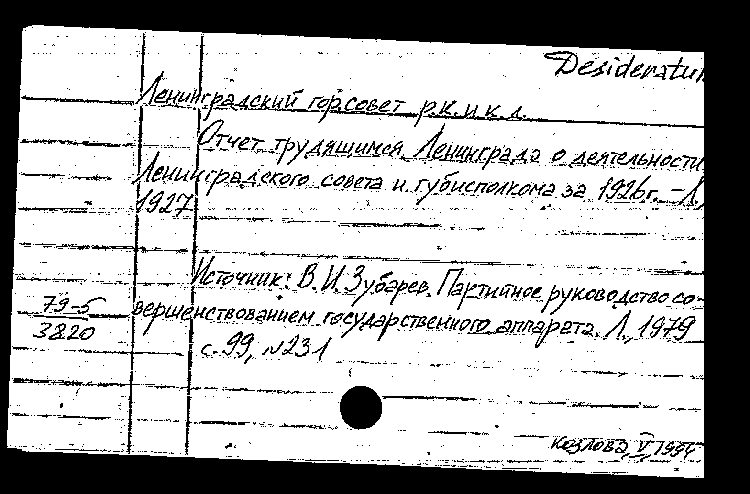 Desideratum
Ленинградский горсовет р.к.и к.д.
Отчет трудящимся Ленинграда о деятельности
Ленинградского совета и губисполкома за 1926г. – Л.,
1927
Источник: В.И. Зубарев. Партийное руководство со-
79-5
3820
вершенствованием государственного аппарата. Л., 1979
с. 99, №231
Козлова, V, 1994